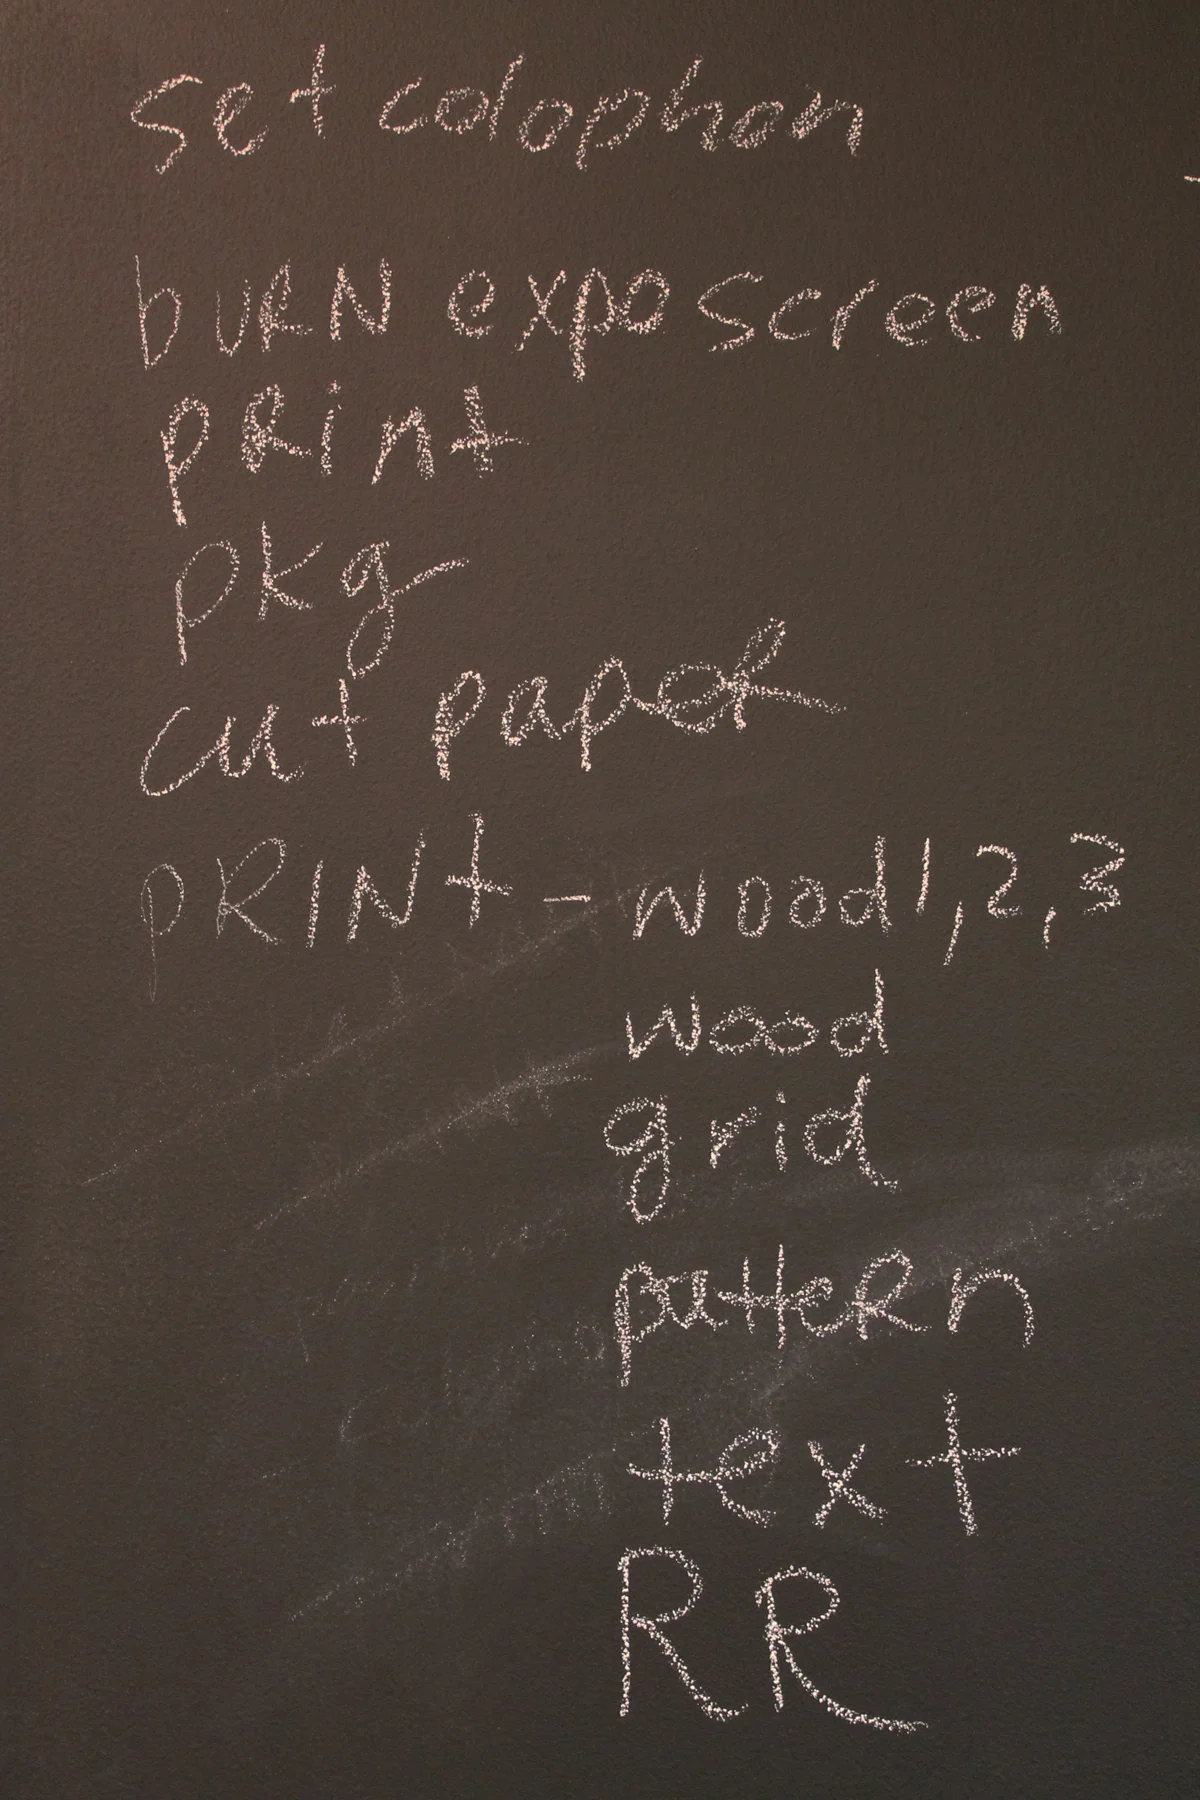 set colophon
buRN expo screen
pRint
pkg
cut papeR
pRINt - wood 1, 2, 3
wood
grid
patteRn
text
RR